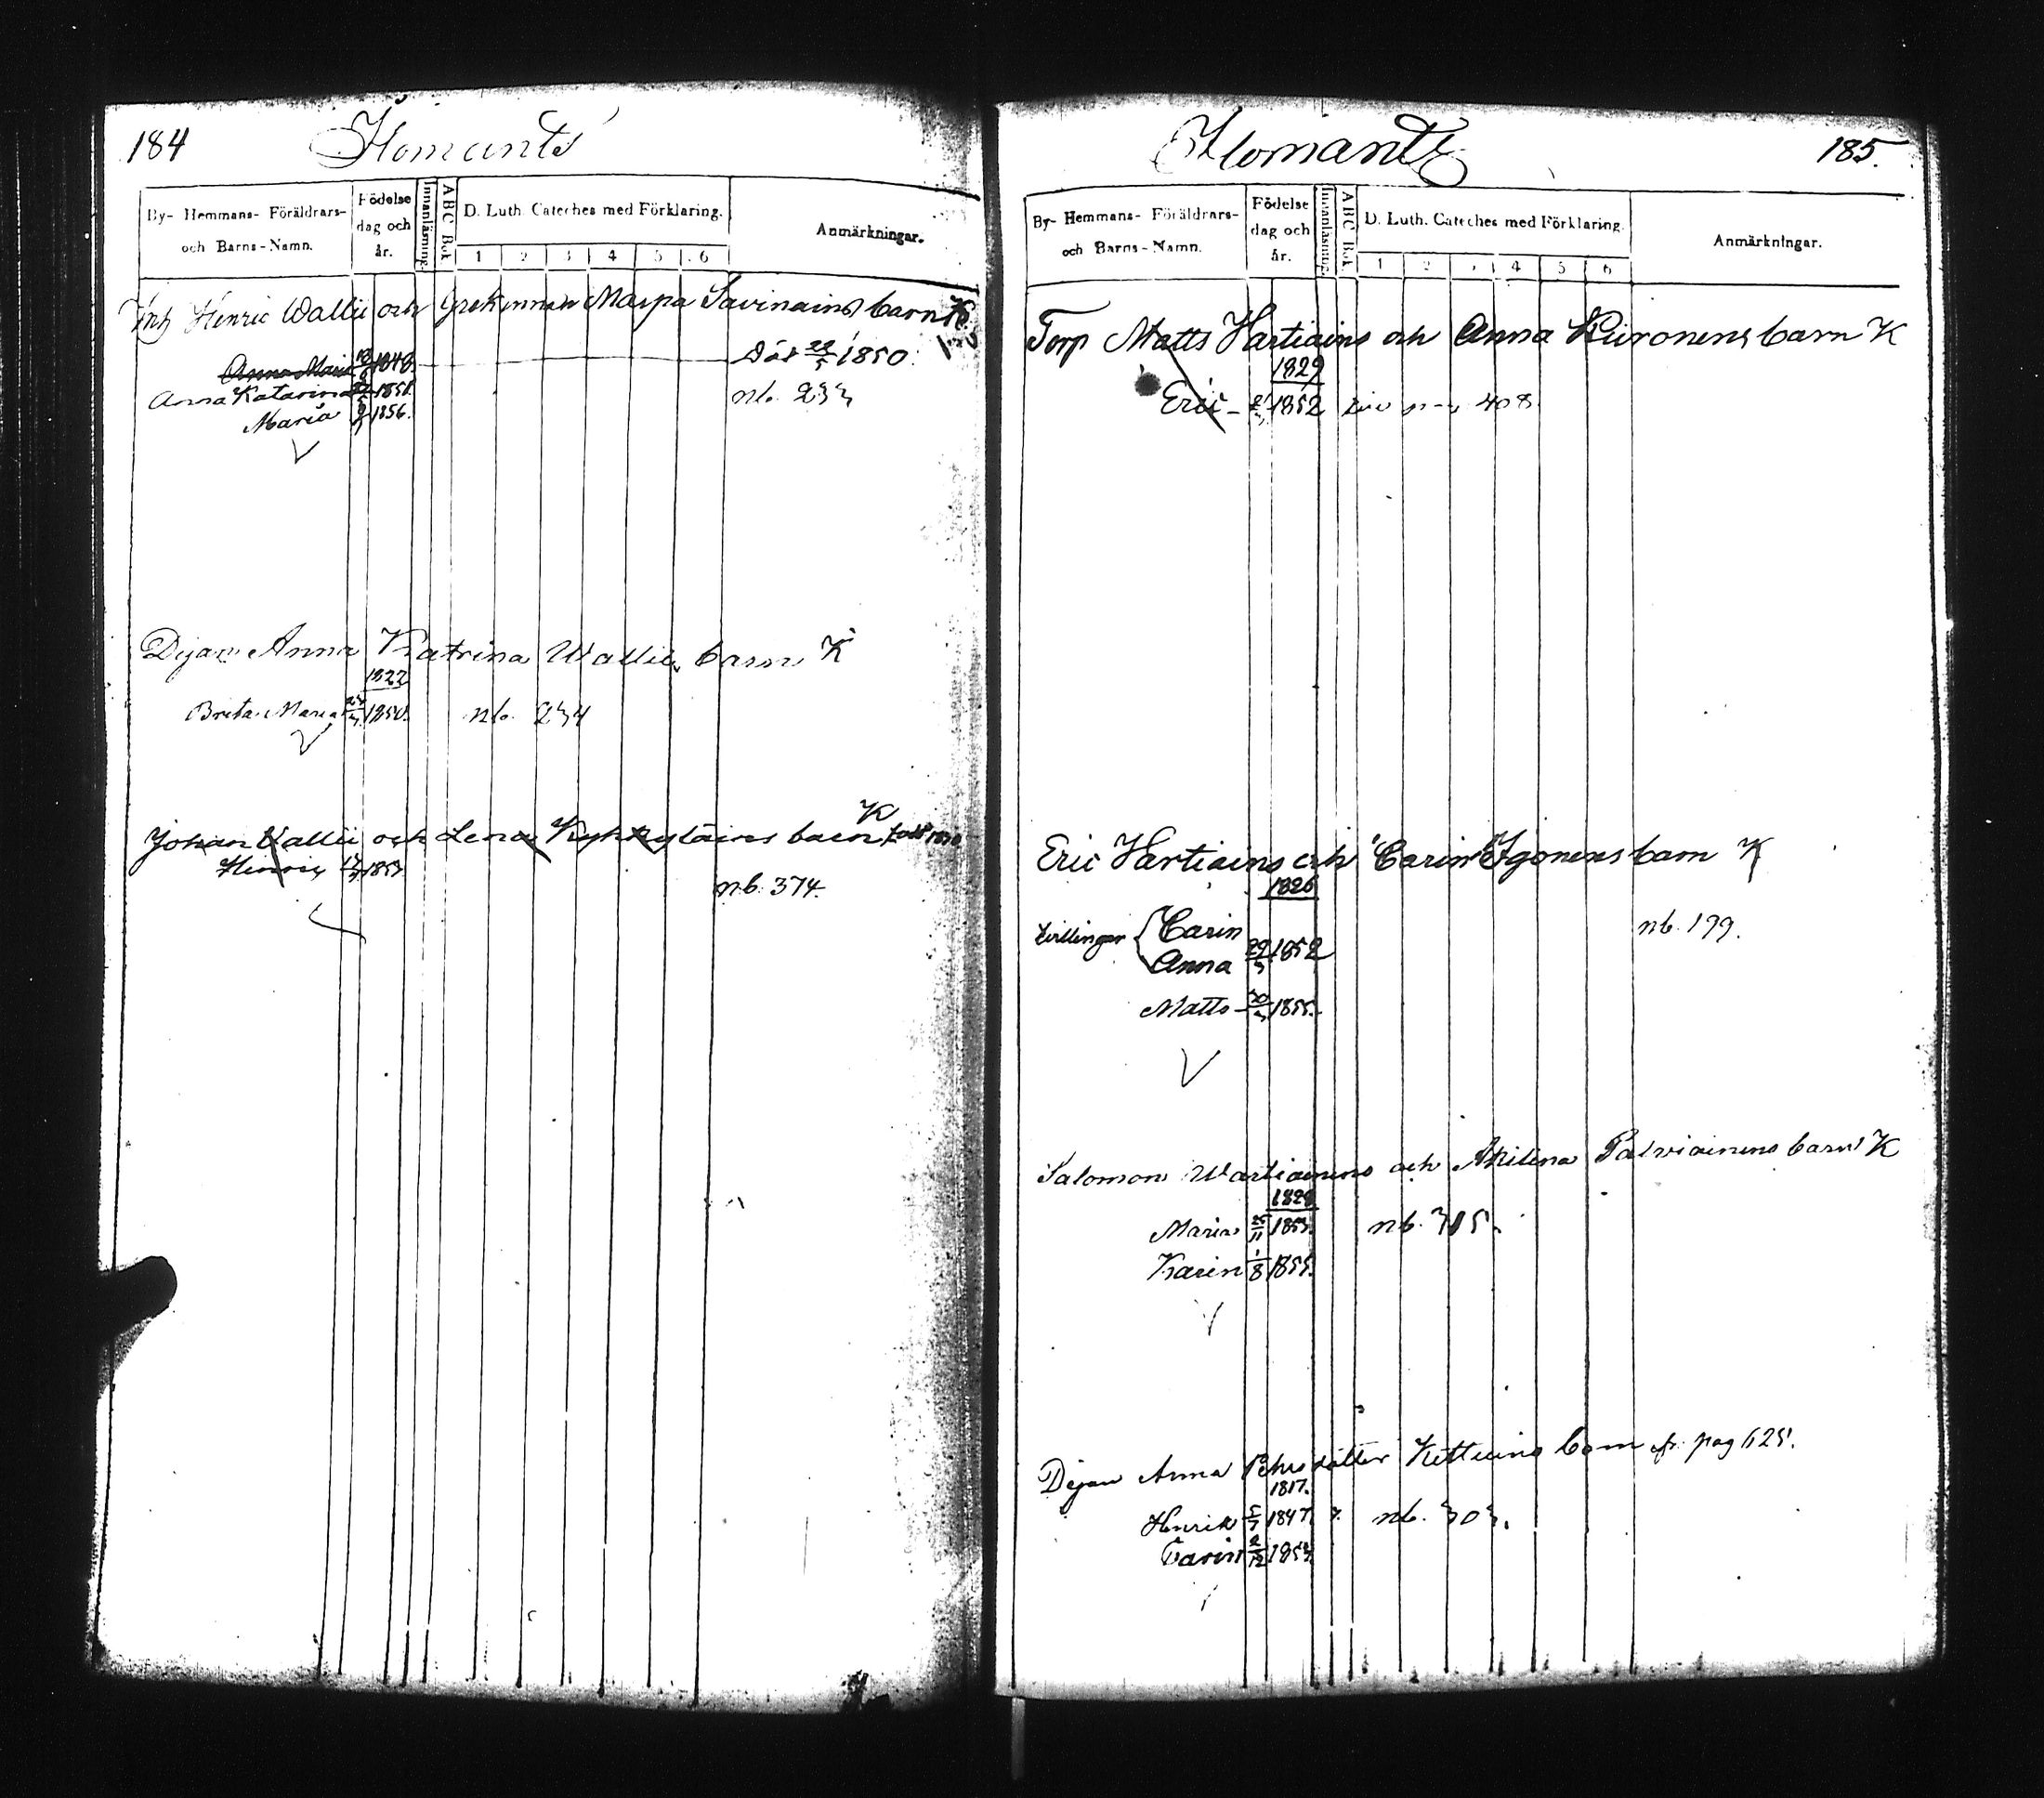 184 Ilomants
By- Hemmans- Föräldrars- och Barns-Namn.
Födelse dag och år.
Innanläsning.
ABC Bok
D. Luth. Cateches med Förklaring.
1 2 3 4 5 6
Anmärkningar.
Inh Henric Wallii och Grekinnan Marpa Savinains barn K
Anna Maria 1848. Död 22/5 1850.
Anna Katarina 1851. nb. 233
Maria 1856.
Dejan Anna Katrina Wallii barn K
1822
Breta Maria 1850. nb. 234
K
Johan Wallii och Lena barn född 1830
Henric 1853
nb. 374.
Ilomants 185.
By- Hemmans- Föräldrars- och Barns-Namn.
Födelse dag och år.
Innanläsning.
ABC Bok.
D. Luth. Cateches med Förklaring.
1 2 3 4 5 6
Anmärkningar.
Torp Matts Hartiains och Anna Kiironens barn K
1829
Eric 1852 408
Eric Hartiains och Carin Igonens barn K
1826
tvillingar { Carin nb. 179.
Anna 29/3 1852
Matts 30/3 1855.
Salomon Wartiainens och Akilina Palviainens barn K
1828
Maria 25/11 1853. nb. 315.
Karin 1/8 1855.
Dejan Anna Pehrsdotter Kettuins barn fr. pag 625.
1817.
Henrik 5/7 1847. nb. 303.
Carin 2/12 1853